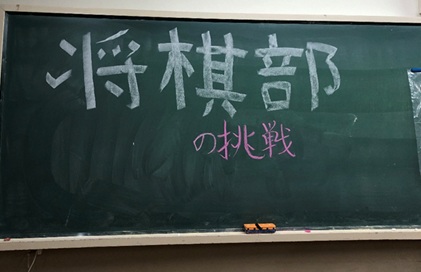 将棋部
の挑戦